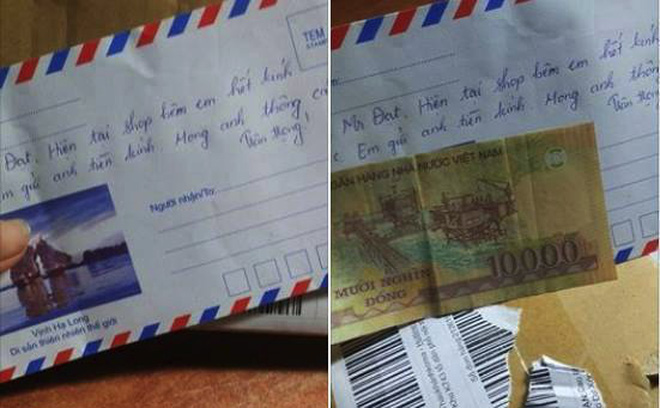 TEM
STAMP
Đạt. Hiện tại shop bên em hết kính
Em gửi anh tiền kính. Mong anh thông
Trân trọng,
Người nhận/To:
Vịnh Hạ Long
Di sản thiên nhiên thế giới
Mr Đạt. Hiện tại shop bên em hết kính
Em gửi anh tiền kính. Mong anh thông
Trân trọng
NGÂN HÀNG NHÀ NƯỚC VIỆT NAM
10.000
MƯỜI NGHÌN
ĐỒNG